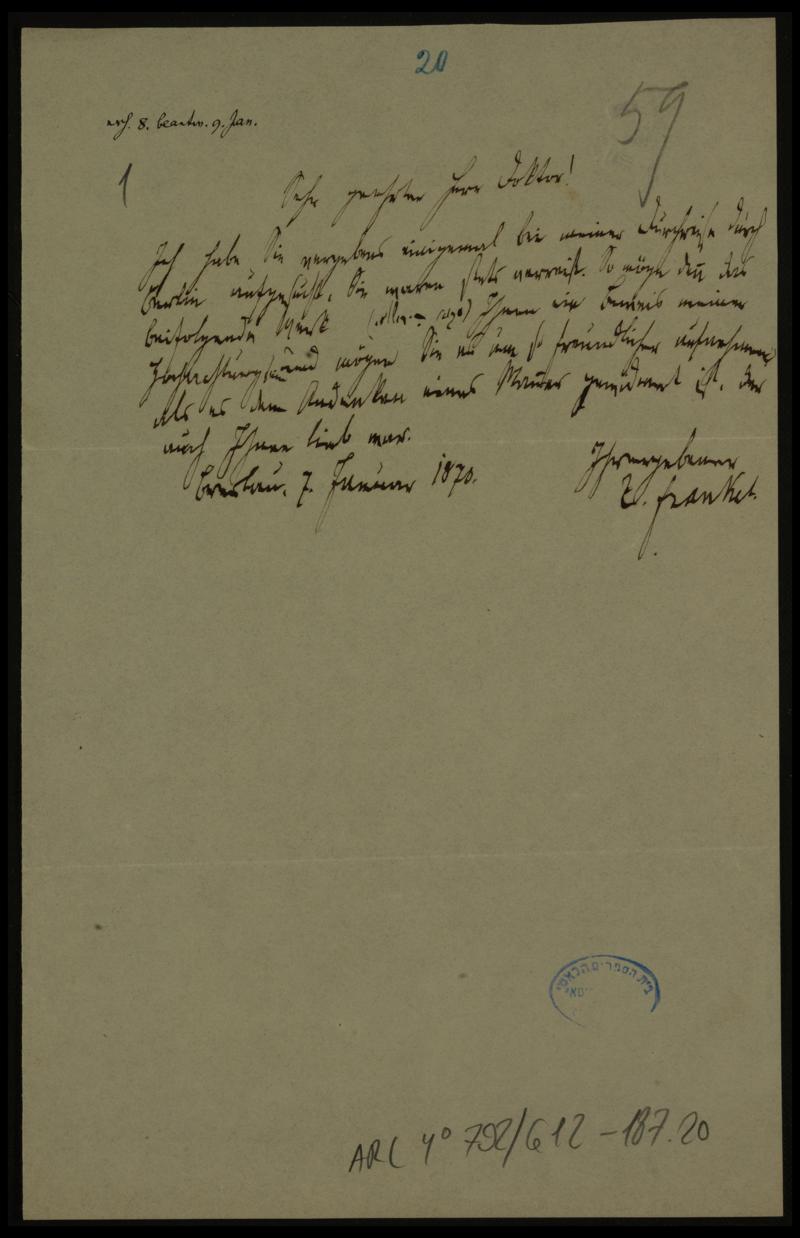 20
59
erh. 8. beantw. 9. Jan.
1
Sehr geehrter Herr Doktor!
Ich habe Sie vergebens einigemal bei meiner Durchreise durch
Berlin aufgesucht, Sie waren stets verreist. So möge den̅ das
beifolgende Werk Ihnen ein Beweis meiner
Hochachtung sein und mögen Sie es um so freundlicher aufnehmen,
als es dem Andenken eines Man̅es gewidmet ist, der
auch Ihnen lieb war.
Breslau, 7. Januar 1870.
Ihr ergebener
Z. Frankel.
בית הספרים הלאומי
ARC 4° 792/G12-187.20